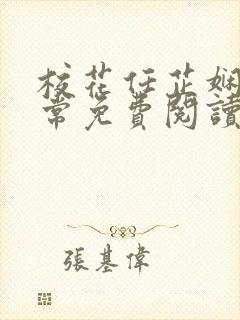 校花任芷娴
常免費閱讀
張基偉